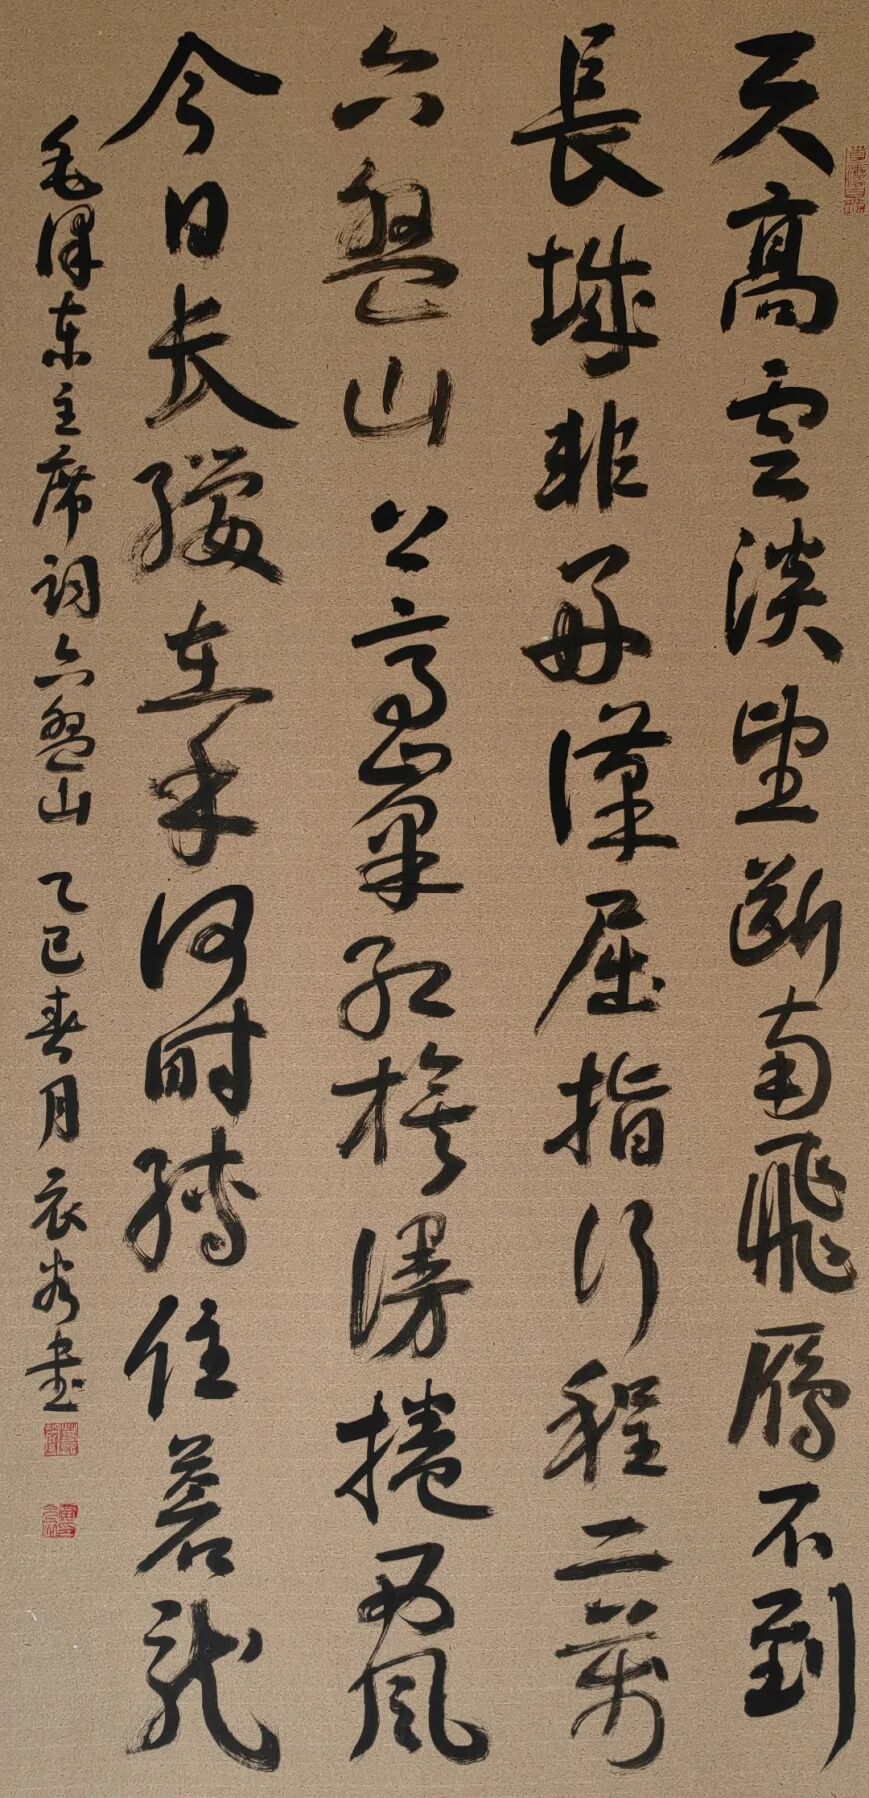 天高雲淡望斷南飛鴈不到
長城非好漢屈指行程二萬
六盤山上高峯紅旗漫捲西風
今日长纓在手何時縛住蒼龍
毛澤东主席词六盤山 乙巳春月 書